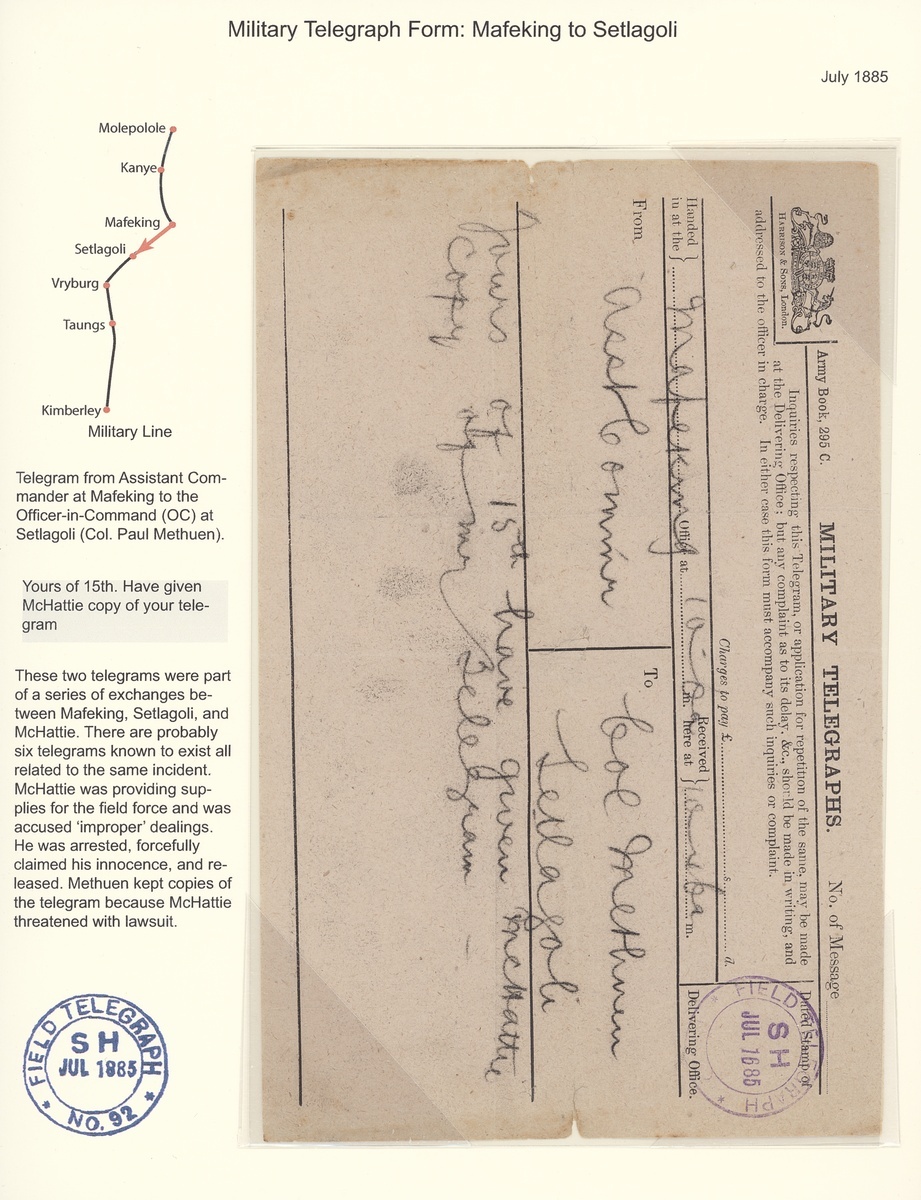 Military Telegraph Form: Mafeking to Setlagoli
July 1885
Molepolole
Kanye
Mafeking
Setlagoli
Vryburg
Taungs
Kimberley
Military Line
Telegram from Assistant Com-
mander at Mafeking to the
Officer-in-Command (OC) at
Setlagoli (Col. Paul Methuen).
Yours of 15th. Have given
McHattie copy of your tele-
gram
These two telegrams were part
of a series of exchanges be-
tween Mafeking, Setlagoli, and
McHattie. There are probably
six telegrams known to exist all
related to the same incident.
McHattie was providing sup-
plies for the field force and was
accused ‘improper’ dealings.
He was arrested, forcefully
claimed his innocence, and re-
leased. Methuen kept copies of
the telegram because McHattie
threatened with lawsuit.
FIELD TELEGRAPH
SH
JUL 1885
* NO. 92 *
Army Book, 295 C.
MILITARY TELEGRAPHS.
No. of Message
HARRISON & SONS, London.
Inquiries respecting this Telegram, or application for repetition of the same, may be made
at the Delivering Office; but any complaint as to its delay, &c., should be made in writing, and
addressed to the officer in charge. In either case this form must accompany such inquiries or complaint.
Dated Stamp of
Delivering Office.
FIELD TELEGRAPH
SH
JUL 1685
Charges to pay £ s. d.
Handed in at the } Mafeking Office at m. Received here at } m.
From Asst Commr
To Col Methuen
Setlagoli
Yours of 15th have given McHattie
copy of telegram